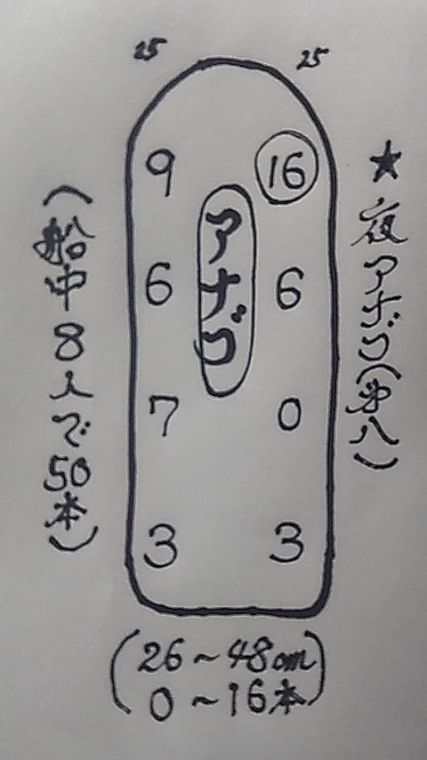 25 25
★夜アナゴ(第八)
9 16
アナゴ
6 6
7 0
3 3
(船中8人で50本)
(26~48cm
0~16本)